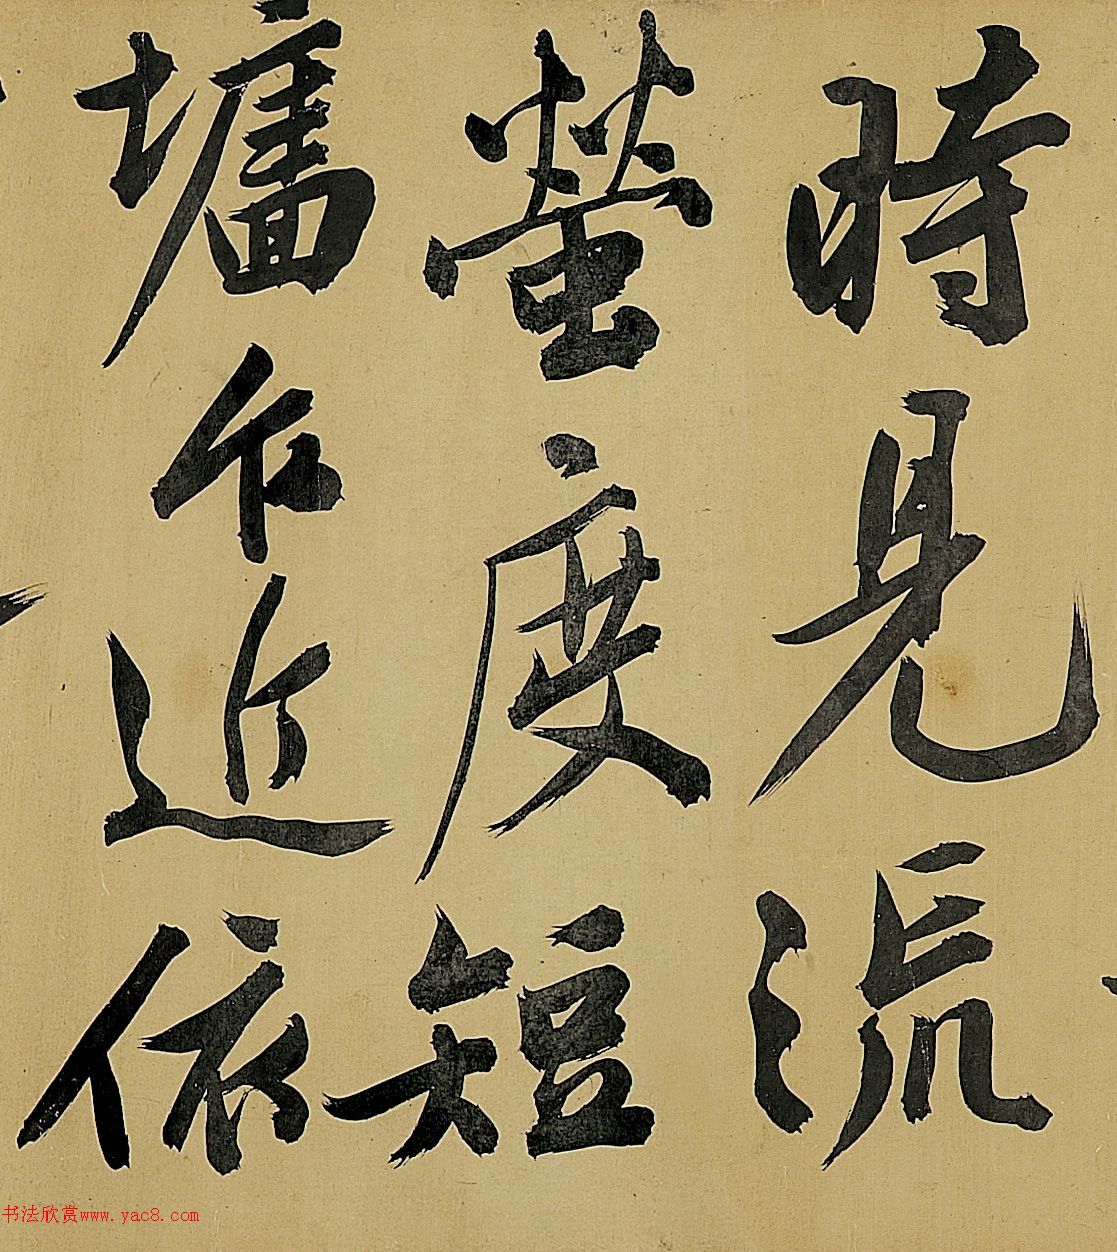 時見流
螢度短
墉乍近依
书法欣赏www.yac8.com